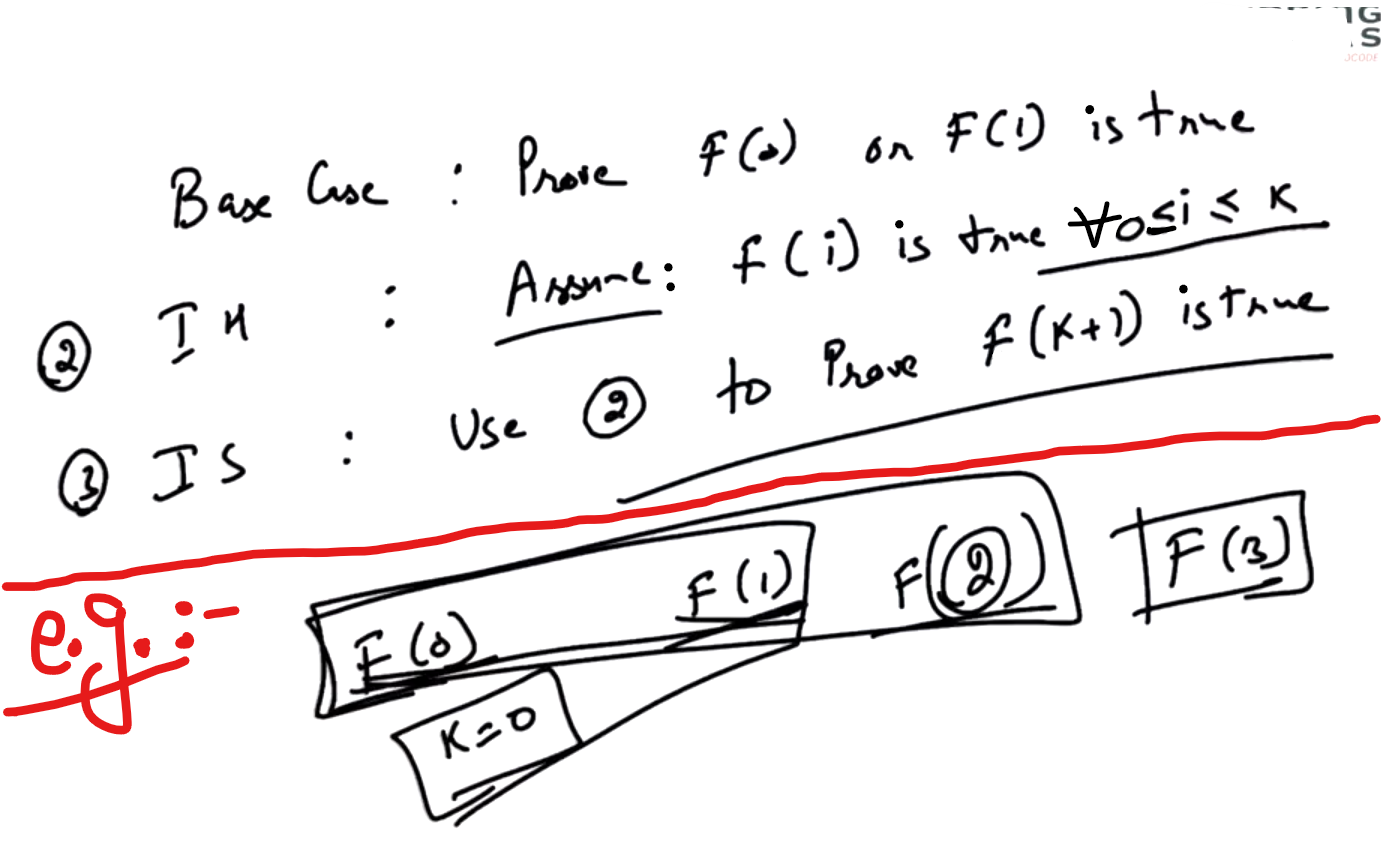 IG
S
JCODE
Base Case : Prove F(0) or F(1) is true
② IH : Assume: f(i) is true ∀0≤i≤K
③ IS : Use ② to Prove F(K+1) is true
e.g. :-
F(0) F(1) F(2) F(3)
K=0